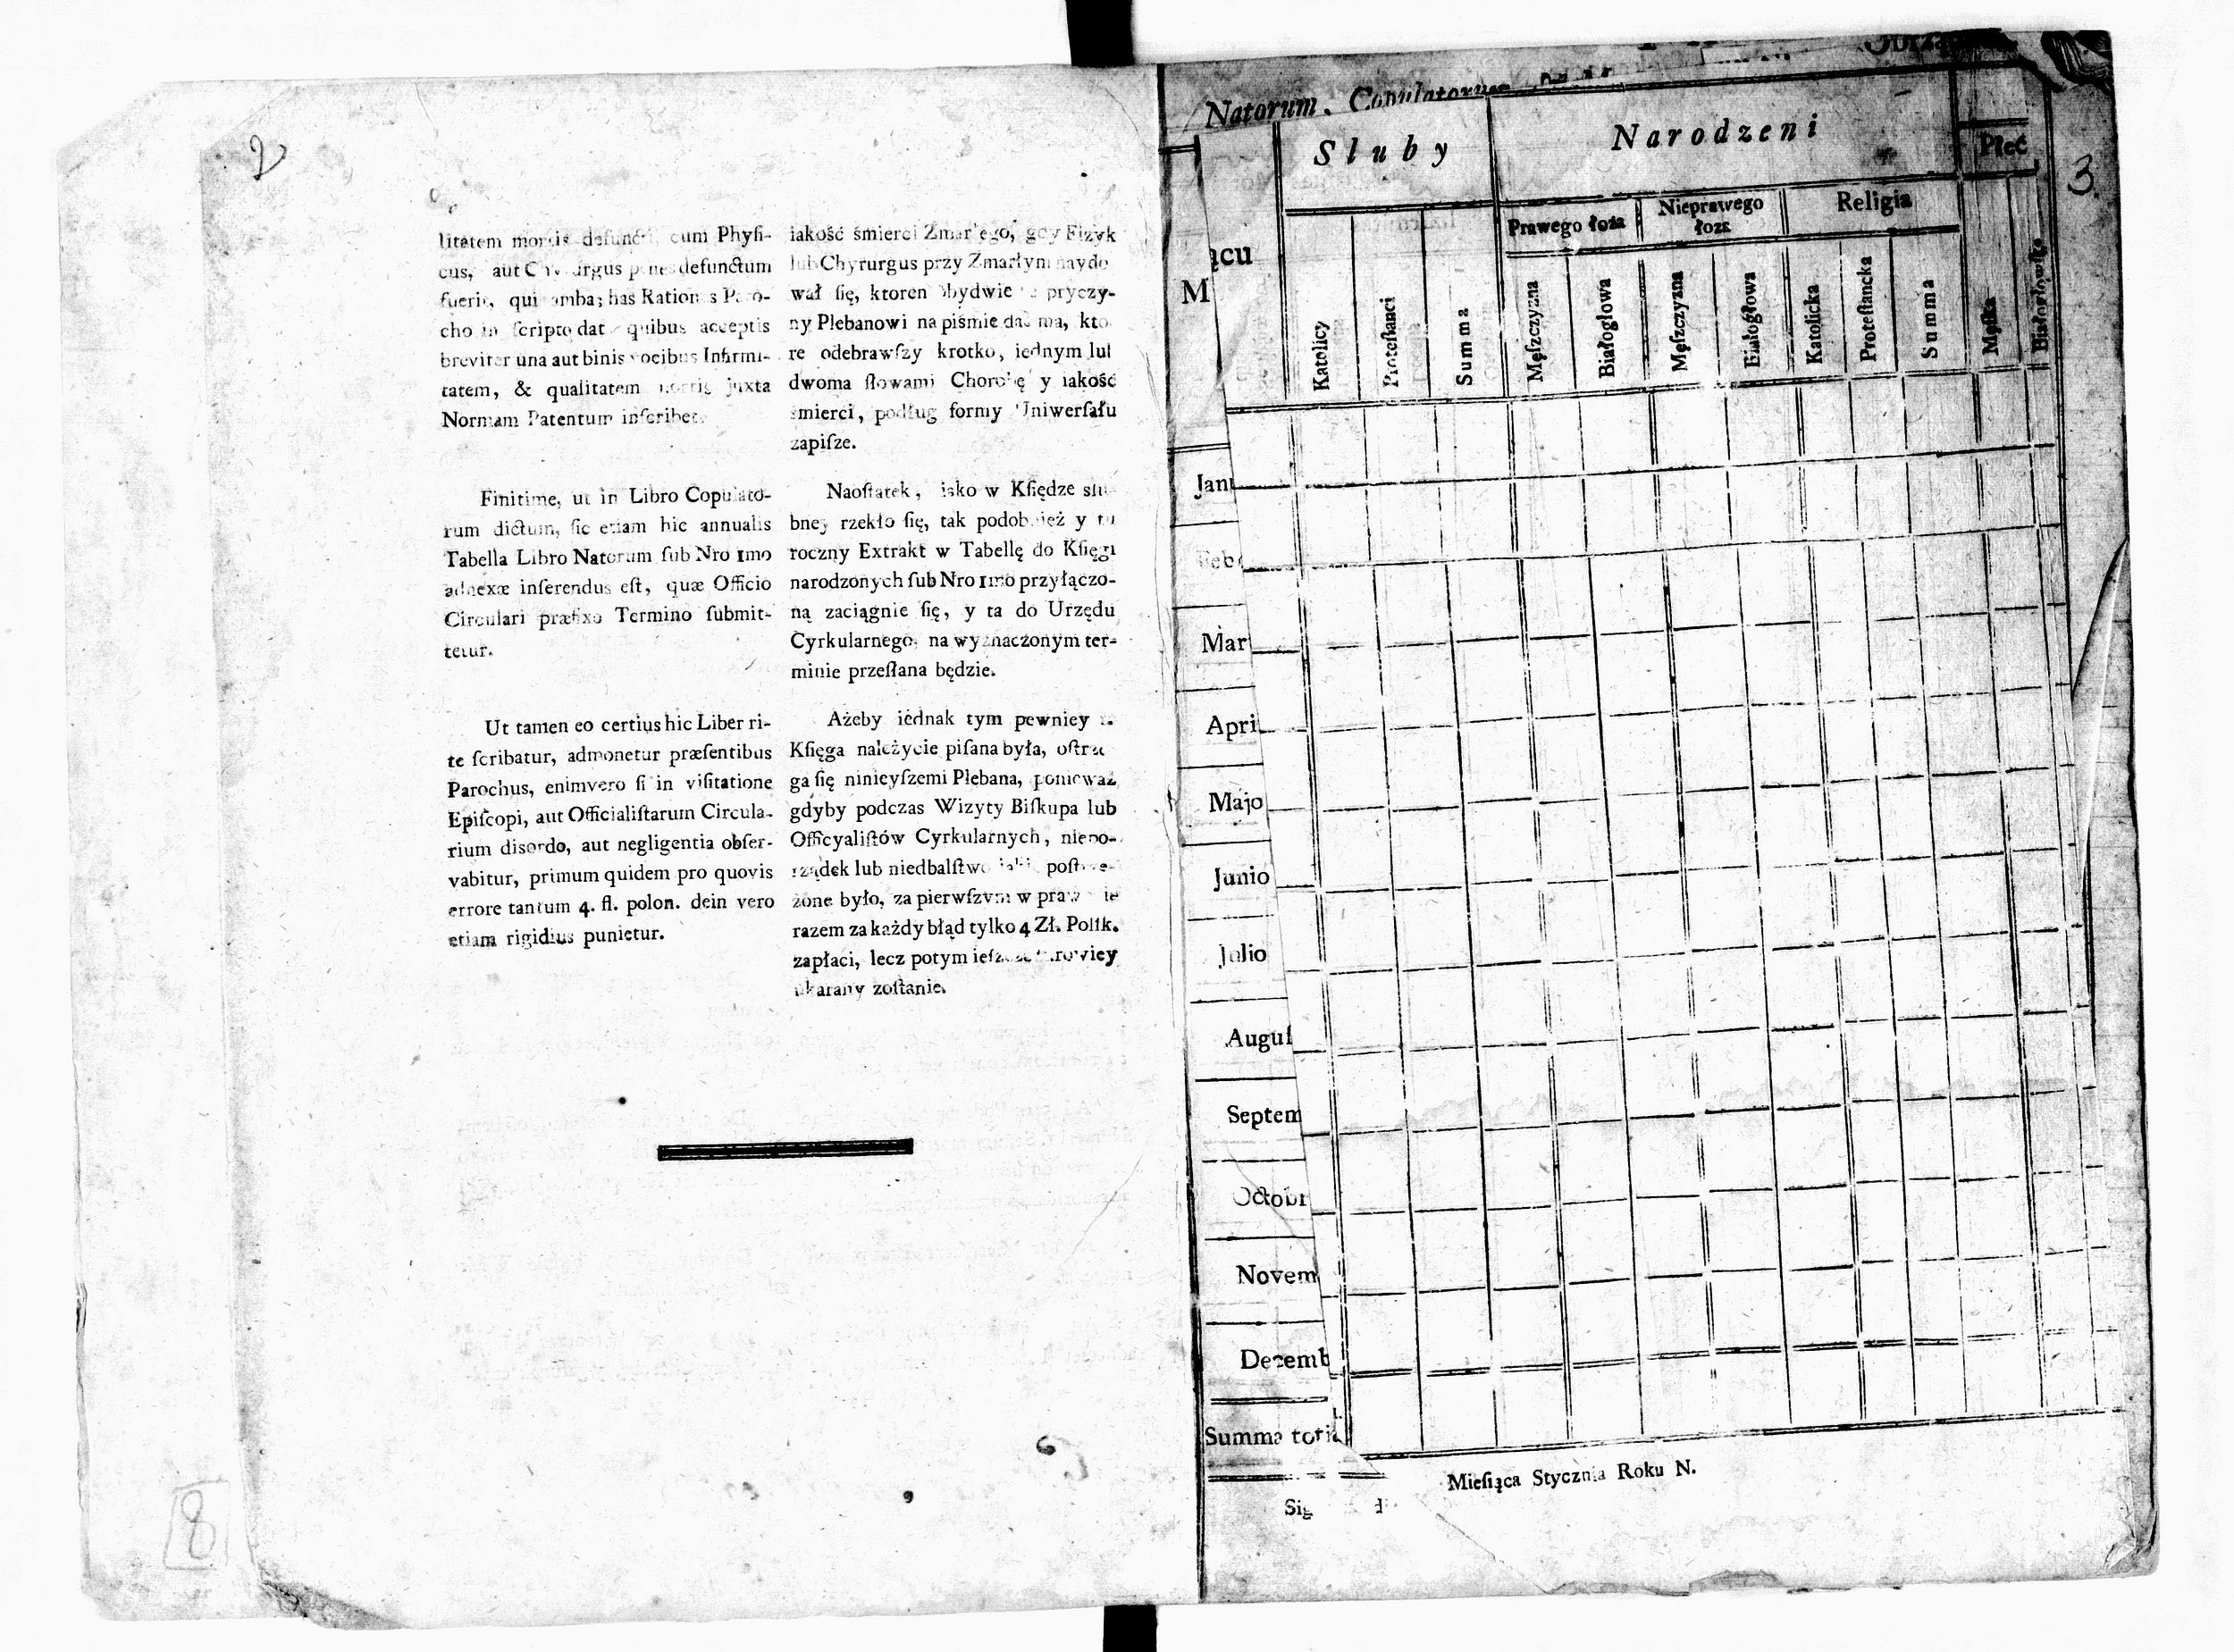 2
litatem mortis defuncti, cum Phyſi-
cus, aut Chyrurgus penes defunctum
fuerit, qui ambas has Rationes Paro-
cho in ſcripto dat, quibus acceptis
breviter una aut binis vocibus Infirmi-
tatem, & qualitatem mortis juxta
Normam Patentum inſcribet.
Finitime, ut in Libro Copulato-
rum dictum, ſic etiam hic annualis
Tabella Libro Natorum ſub Nro 1mo
adnexæ inſerendus eſt, quæ Officio
Circulari præfixo Termino ſubmit-
tetur.
Ut tamen eo certius hic Liber ri-
te ſcribatur, admonetur præſentibus
Parochus, enimvero ſi in viſitatione
Epiſcopi, aut Officialiſtarum Circula-
rium disordo, aut negligentia obſer-
vabitur, primum quidem pro quovis
errore tantum 4. fl. polon. dein vero
etiam rigidius punietur.
iakość śmierci Zmarłego, gdy Fizyk
lub Chyrurgus przy Zmarłym naydo
wał ſię, ktoren obydwie te pryczy-
ny Plebanowi na piśmie dać ma, kto
re odebrawſzy krotko, iednym lub
dwoma ſłowami Chorobę y iakość
śmierci, podług formy Uniwerſału
zapiſze.
Naoſtatek, iako w Kſiędze slu
bney rzekło ſię, tak podobnież y tu
roczny Extrakt w Tabellę do Kſięgi
narodzonych ſub Nro 1mo przyłączo-
ną zaciągnie ſię, y ta do Urzędu
Cyrkularnego, na wyznaczonym ter-
minie przeſłana będzie.
Ażeby iednak tym pewniey
Kſięga należycie piſana była, oſtrze
ga ſię ninieyſzemi Plebana, ponieważ
gdyby podczas Wizyty Biſkupa lub
Officyaliſtów Cyrkularnych, niepo-
rządek lub niedbalſtwo iakie poſtrze-
żone było, za pierwſzym w prawdzie
razem za każdy błąd tylko 4 Zł. Polſk.
zapłaci, lecz potym ieſzcze ſurowiey
ukarany zoſtanie.
8
3.
Natorum, Copulatorum
Sluby
Narodzeni
Płeć
Prawego łoża
Nieprawego
łoża
Religia
ącu
M
Katolicy
Proteſtanci
Summa
Męſzczyzna
Białogłowa
Męſzczyzna
Białogłowa
Katolicka
Proteſtancka
Summa
Męſka
Białogłowſka
Janu
Febr
Mar
April
Majo
Junio
Julio
Auguſ
Septem
Octobr
Novem
Decemb
Summa toti
Miesiąca Stycznia Roku N.
Sig